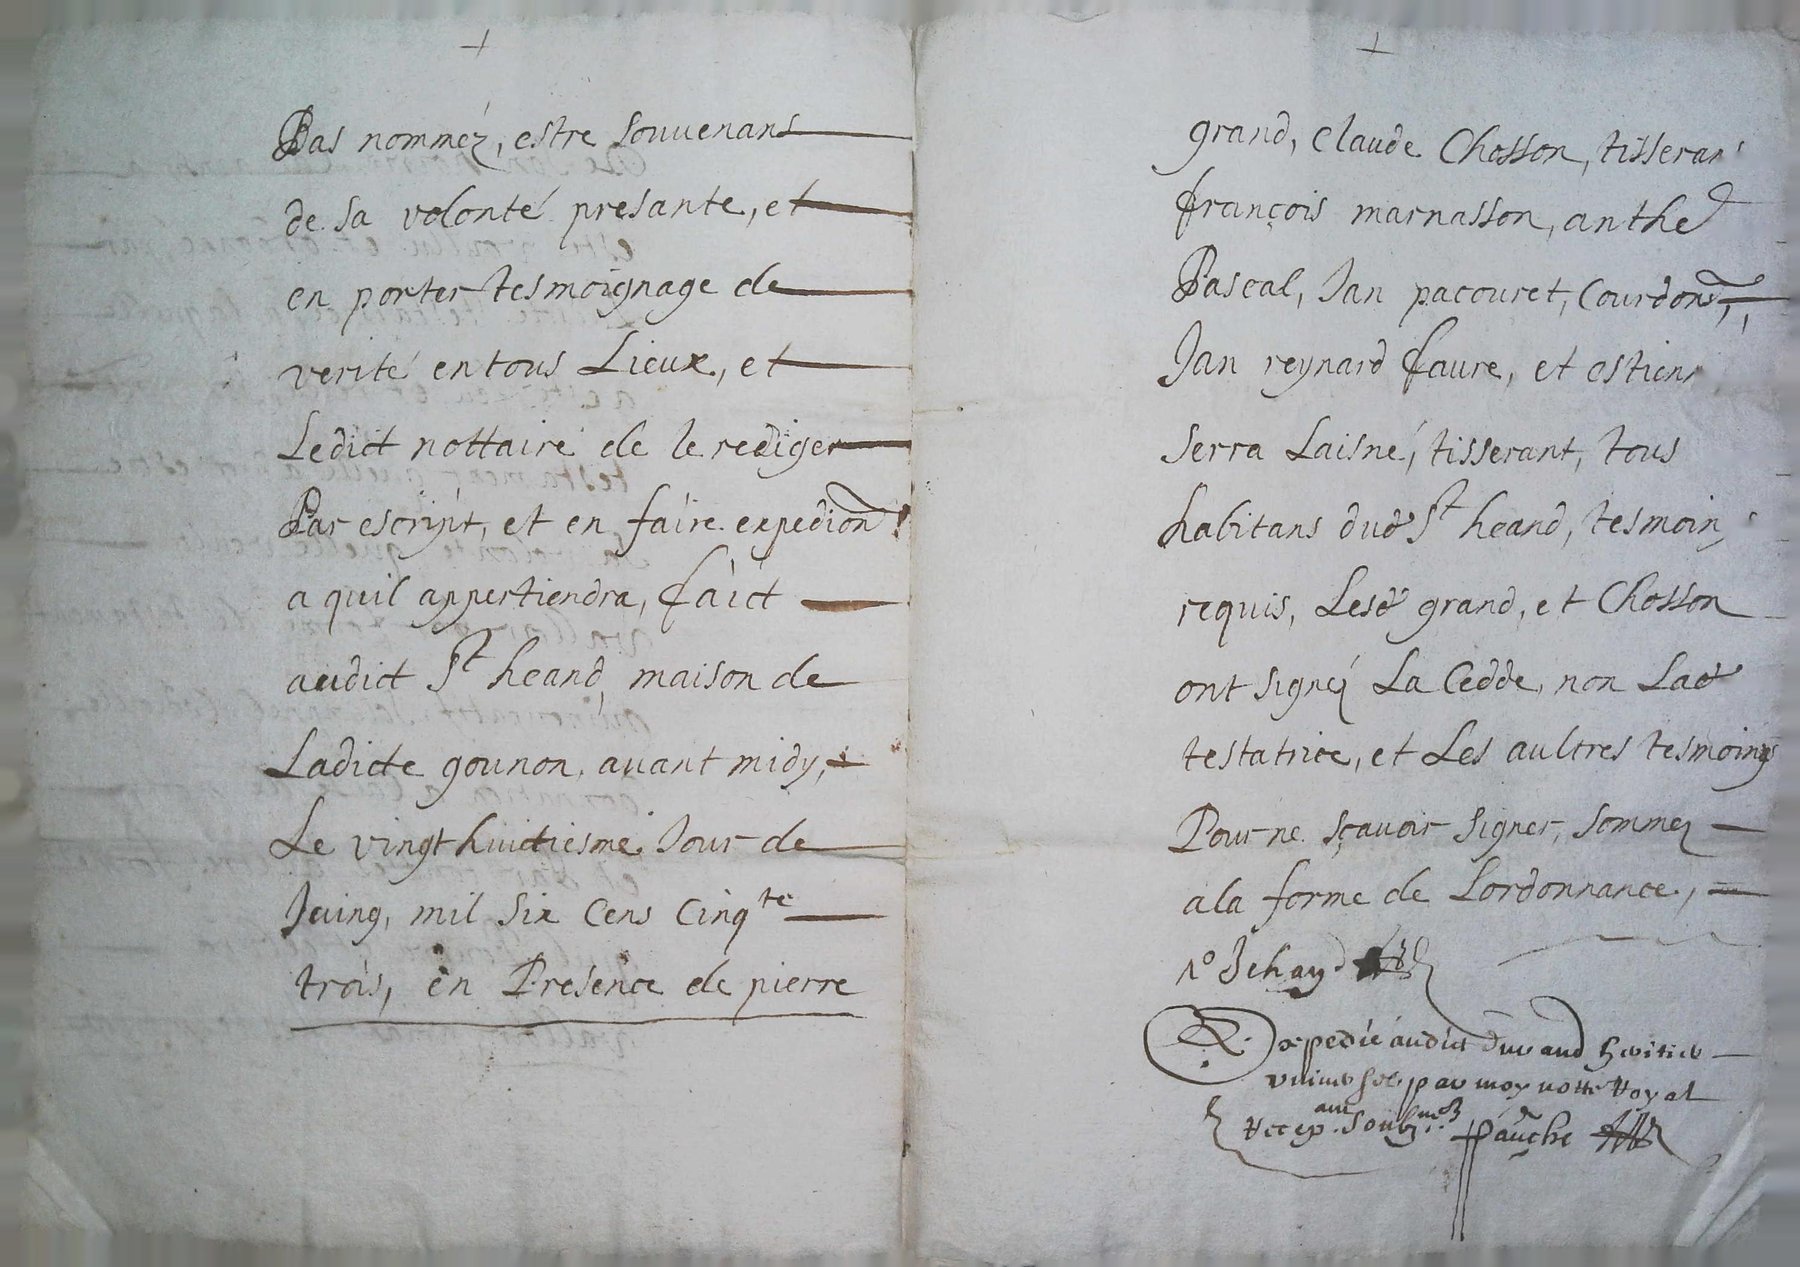 Bas nomméz, estre souvenans
de sa volonté presante, et
en porter tesmoignage de
verité en tous Lieux, et
Ledict nottaire de le rediger
Par escript, et en faire expedion
a quil appertiendra, faict
audict St heand, maison de
Ladicte gounon, avant midy,
Le vingt huictiesme Jour de
Juing, mil six Cens Cinqte
trois, en Presence de pierre
grand, Claude Chosson, tisseran
françois marnasson, anthe
Pascal, Jan pacouret, Courdonr,
Jan reynard faure, et estiene
serra Laisné, tisserant, tous
habitans dud St heand, tesmoin
requis, Lesd grand, et Chosson
ont signéz La Cedde, non Lad
testatrice, et Les aultres tesmoings
Pour ne sçavoir signer, sommez
a la forme de Lordonnance,
Expedié audict Durand heritier
par moy nottre Royal
recep. soubzne